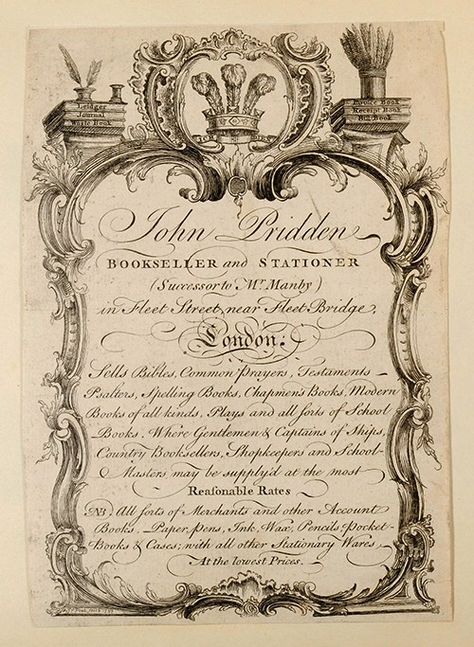 Ledger
Journal
Waste Book
Invoice Book
Receipt Book
Bill Book
John Pridden
BOOKSELLER and STATIONER
(Successor to Mr. Manby)
in Fleet Street, near Fleet Bridge,
London.
Sells Bibles, Common prayers, Testaments
Psalters, Spelling Books, Chapmens Books, Modern
Books of all kinds, Plays and all ſorts of School
Books, Where Gentlemen & Captains of Ships,
Country Booksellers, Shopkeepers and School-
Masters, may be supply'd at the most
Reaſonable Rates
NB: All ſorts of Merchants and other Account
Books, Paper, pens, Ink, Wax, Pencils, Pocket-
Books & Cases; with all other Stationary Wares,
At the lowest Prices.